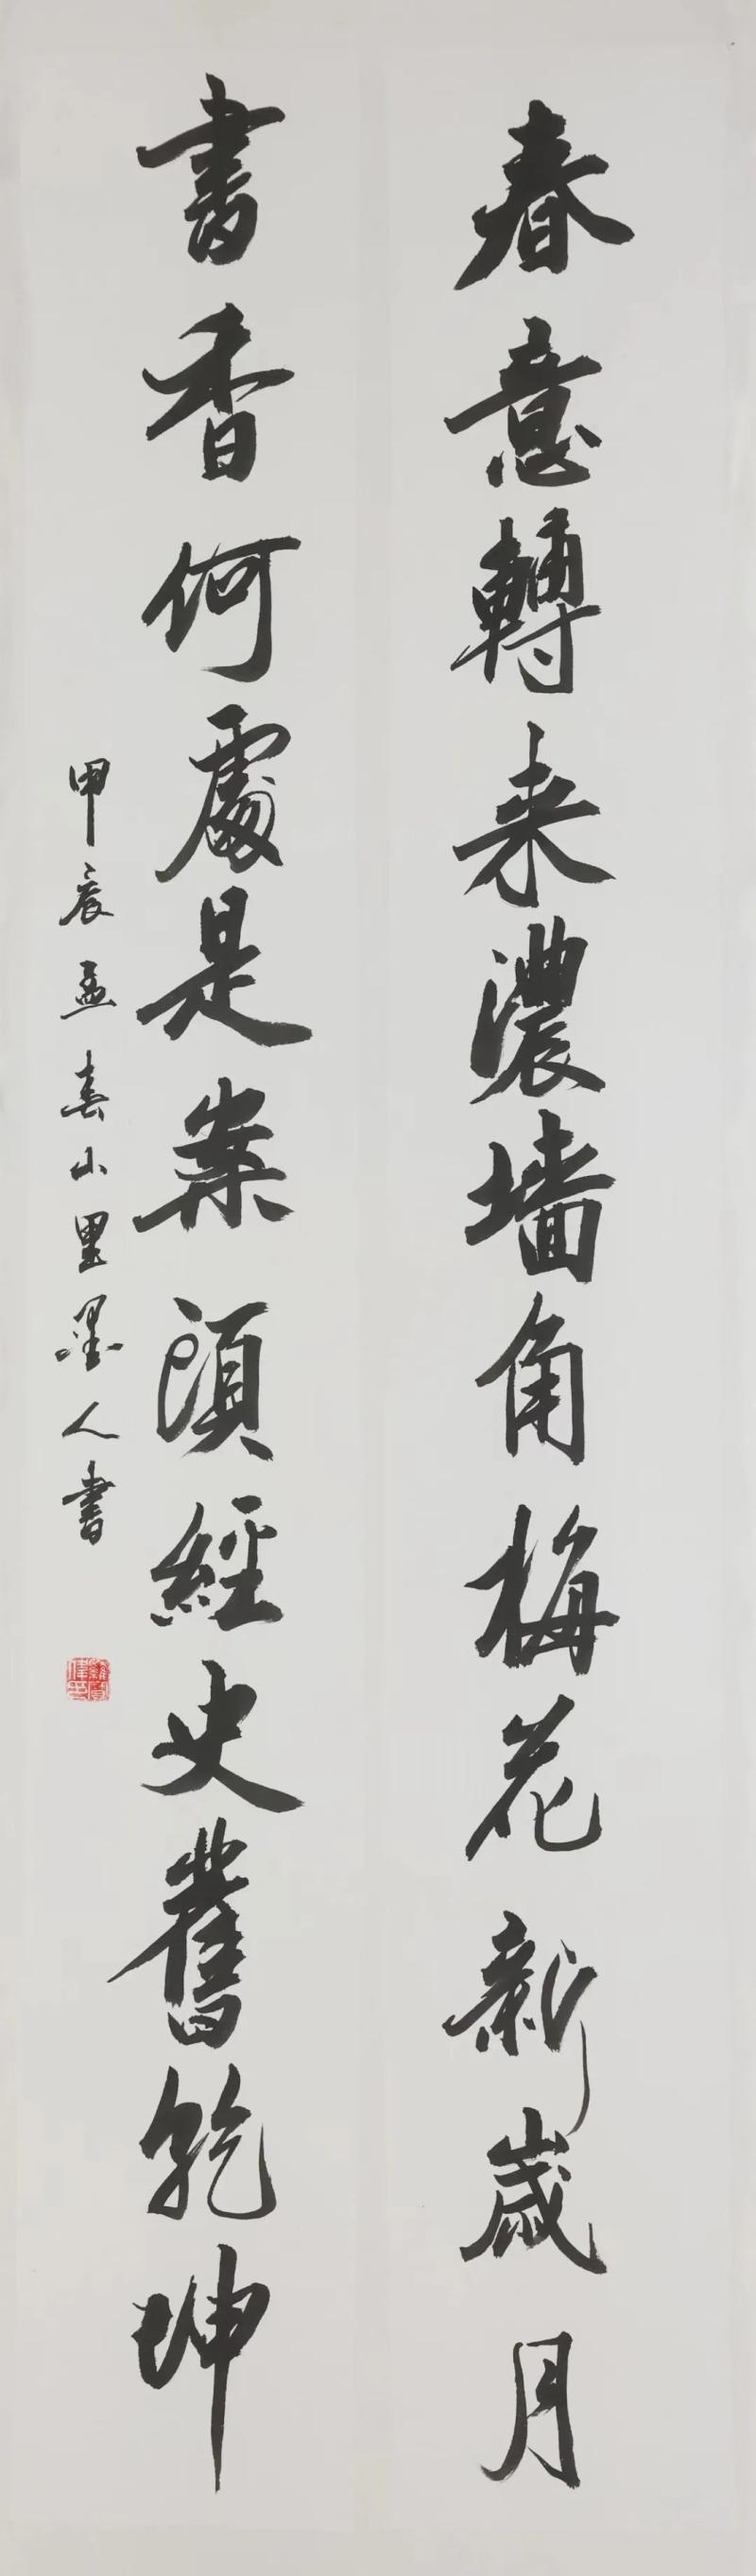 春意轉来濃墙角梅花新歲月
書香何處是案頭經史舊乾坤
甲辰孟春山里墨人書